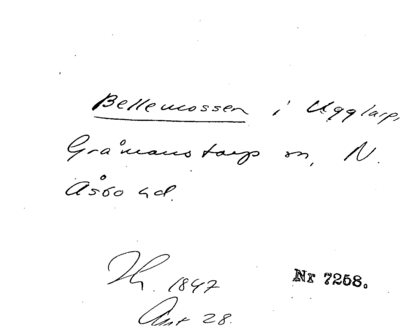 Bellemossen i Ugglarp,
Gråmanstorp sn, N.
Åsbo hd.
Th. 1847
Nr 7258.
Ant 28.